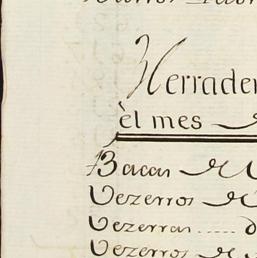 Herrader
èl mes de
Bacas de
Vezerros de
Vezerras ..... d
Vezerros de